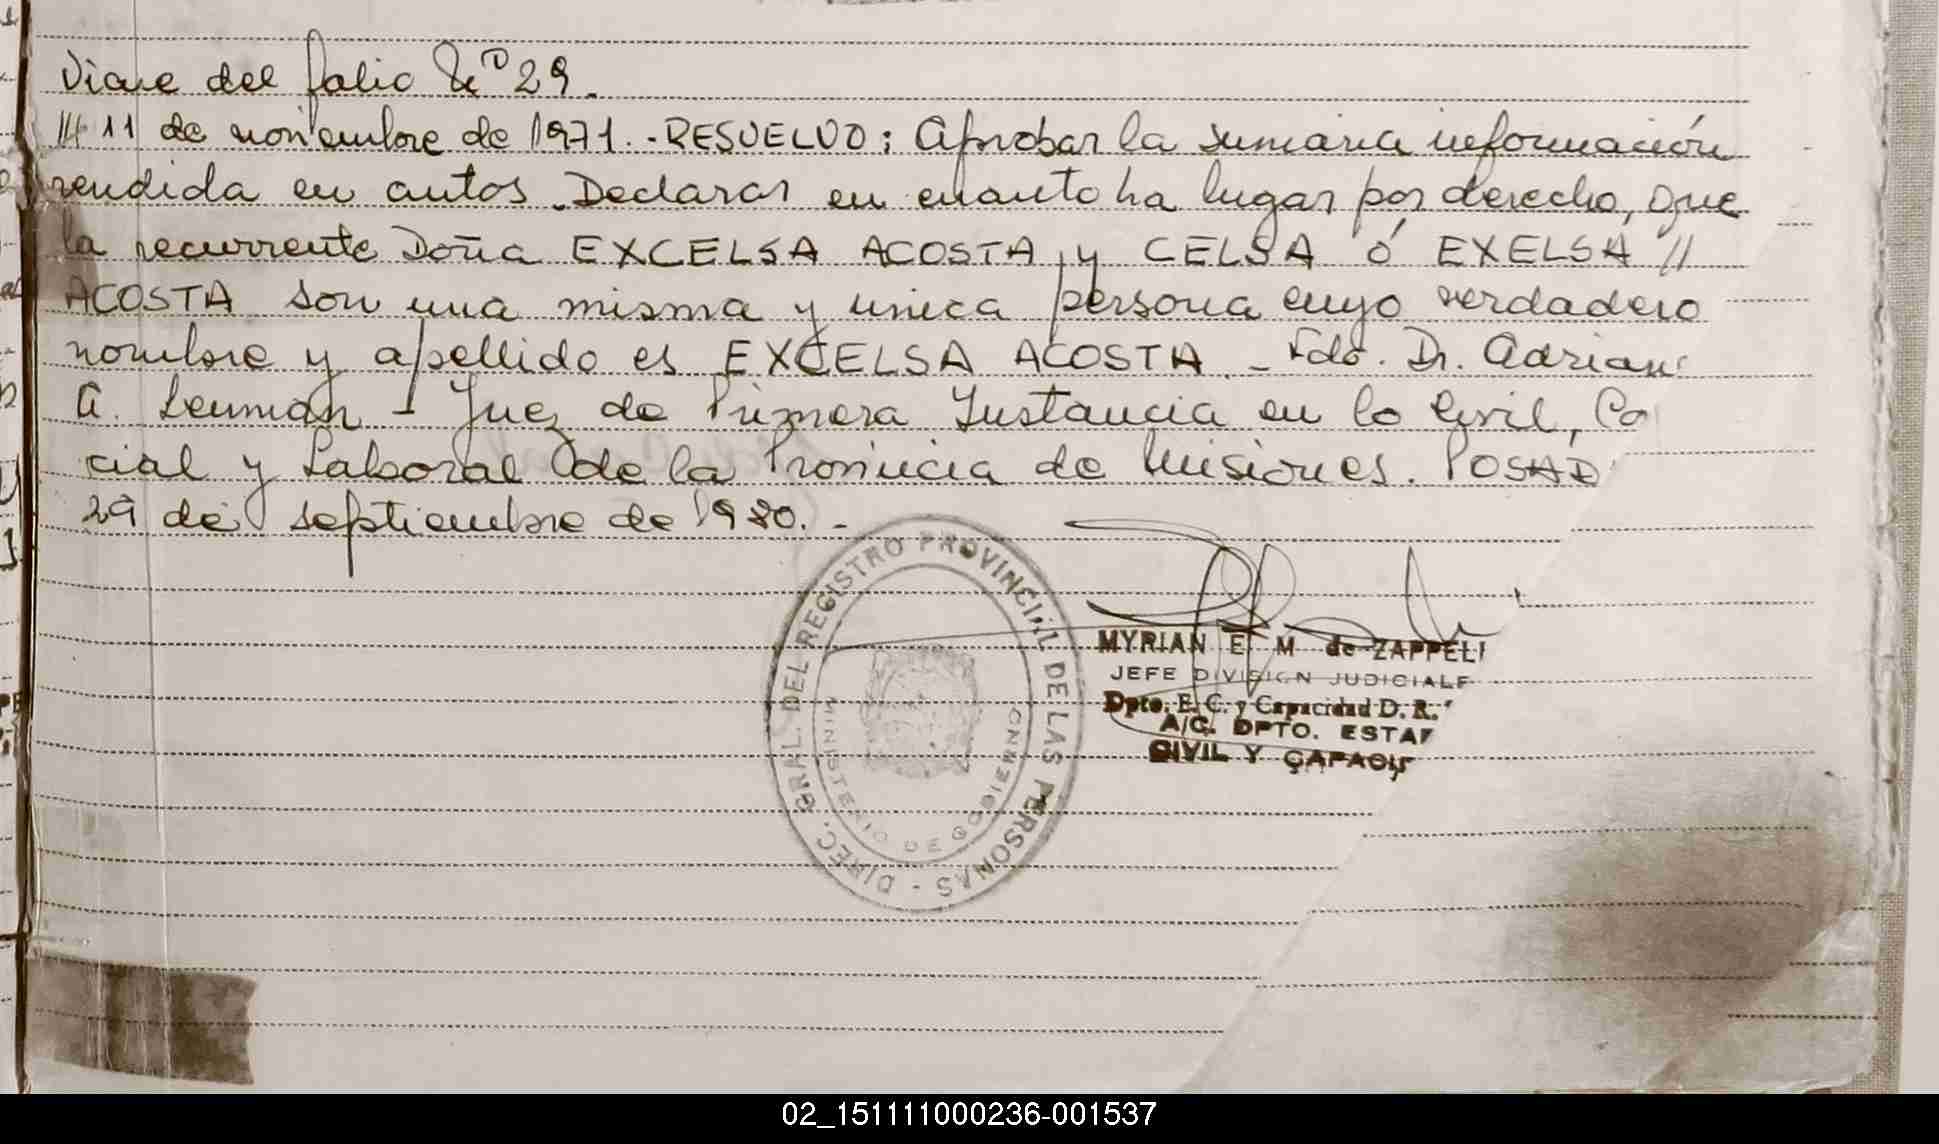 Viene del folio Nº 29.
// 11 de noviembre de 1971.-RESUELVO: Aprobar la sumaria información
rendida en autos. Declarar en cuanto ha lugar por derecho, que
la recurrente Doña EXCELSA ACOSTA y CELSA ó EXELSA //
ACOSTA son una misma y unica persona cuyo verdadero
nombre y apellido es EXCELSA ACOSTA. - Fdo. Dr. Adrian
A. - Juez de Primera Instancia en lo Civil, Co
cial y Laboral de la Provincia de Misiones. POSAD
29 de septiembre de 1980. -
DIREC. GRAL. DEL REGISTRO PROVINCIAL DE LAS PERSONAS -
MINISTERIO DE GOBIERNO
MYRIAN E. M de ZAPPELI
JEFE DIVISION JUDICIALE
Dpto. E. C. y Capacidad D. R.
A/C. DPTO. ESTA
CIVIL Y CAPACI
02_151111000236-001537